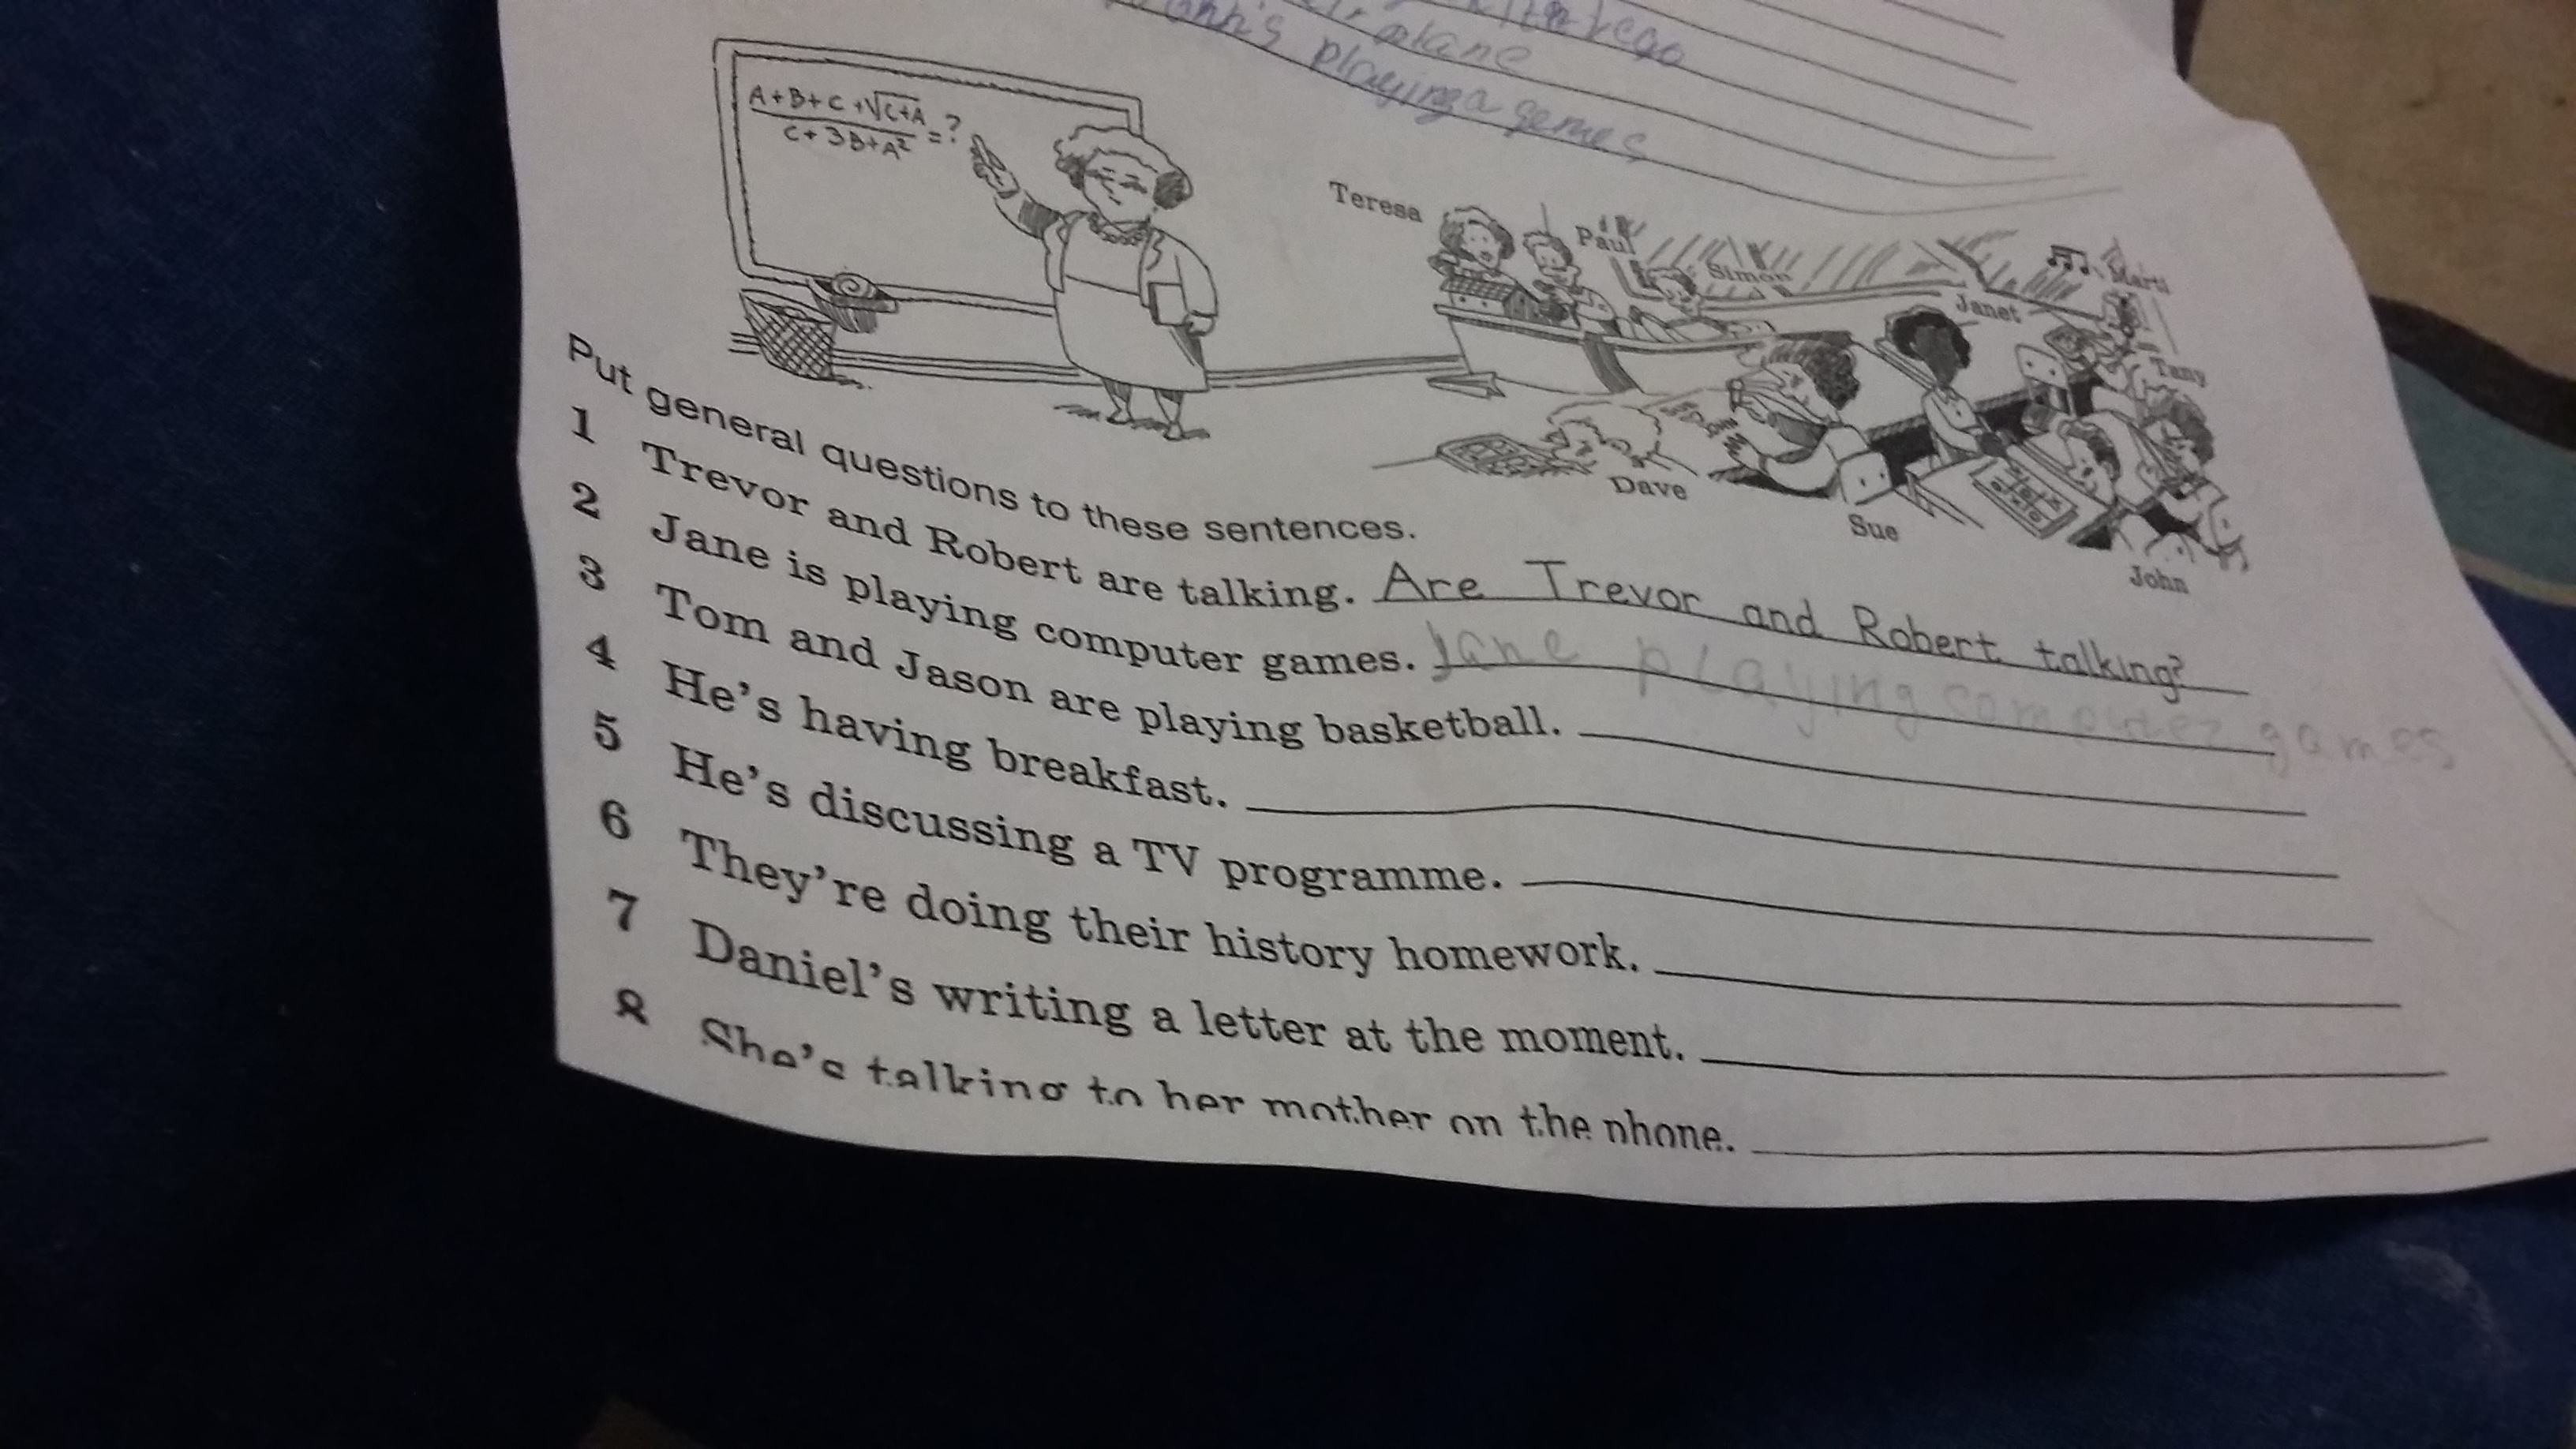 playing a games
A+B+C+√C+A
C+3B+A² = ?
Teresa
Paul
Simon
Janet
Tany
Dave
Sue
John
Put general questions to these sentences.
1 Trevor and Robert are talking. Are Trevor and Robert talking?
2 Jane is playing computer games. Jane playing computer games
3 Tom and Jason are playing basketball.
4 He's having breakfast.
5 He's discussing a TV programme.
6 They're doing their history homework.
7 Daniel's writing a letter at the moment.
8 She's talking to her mother on the phone.